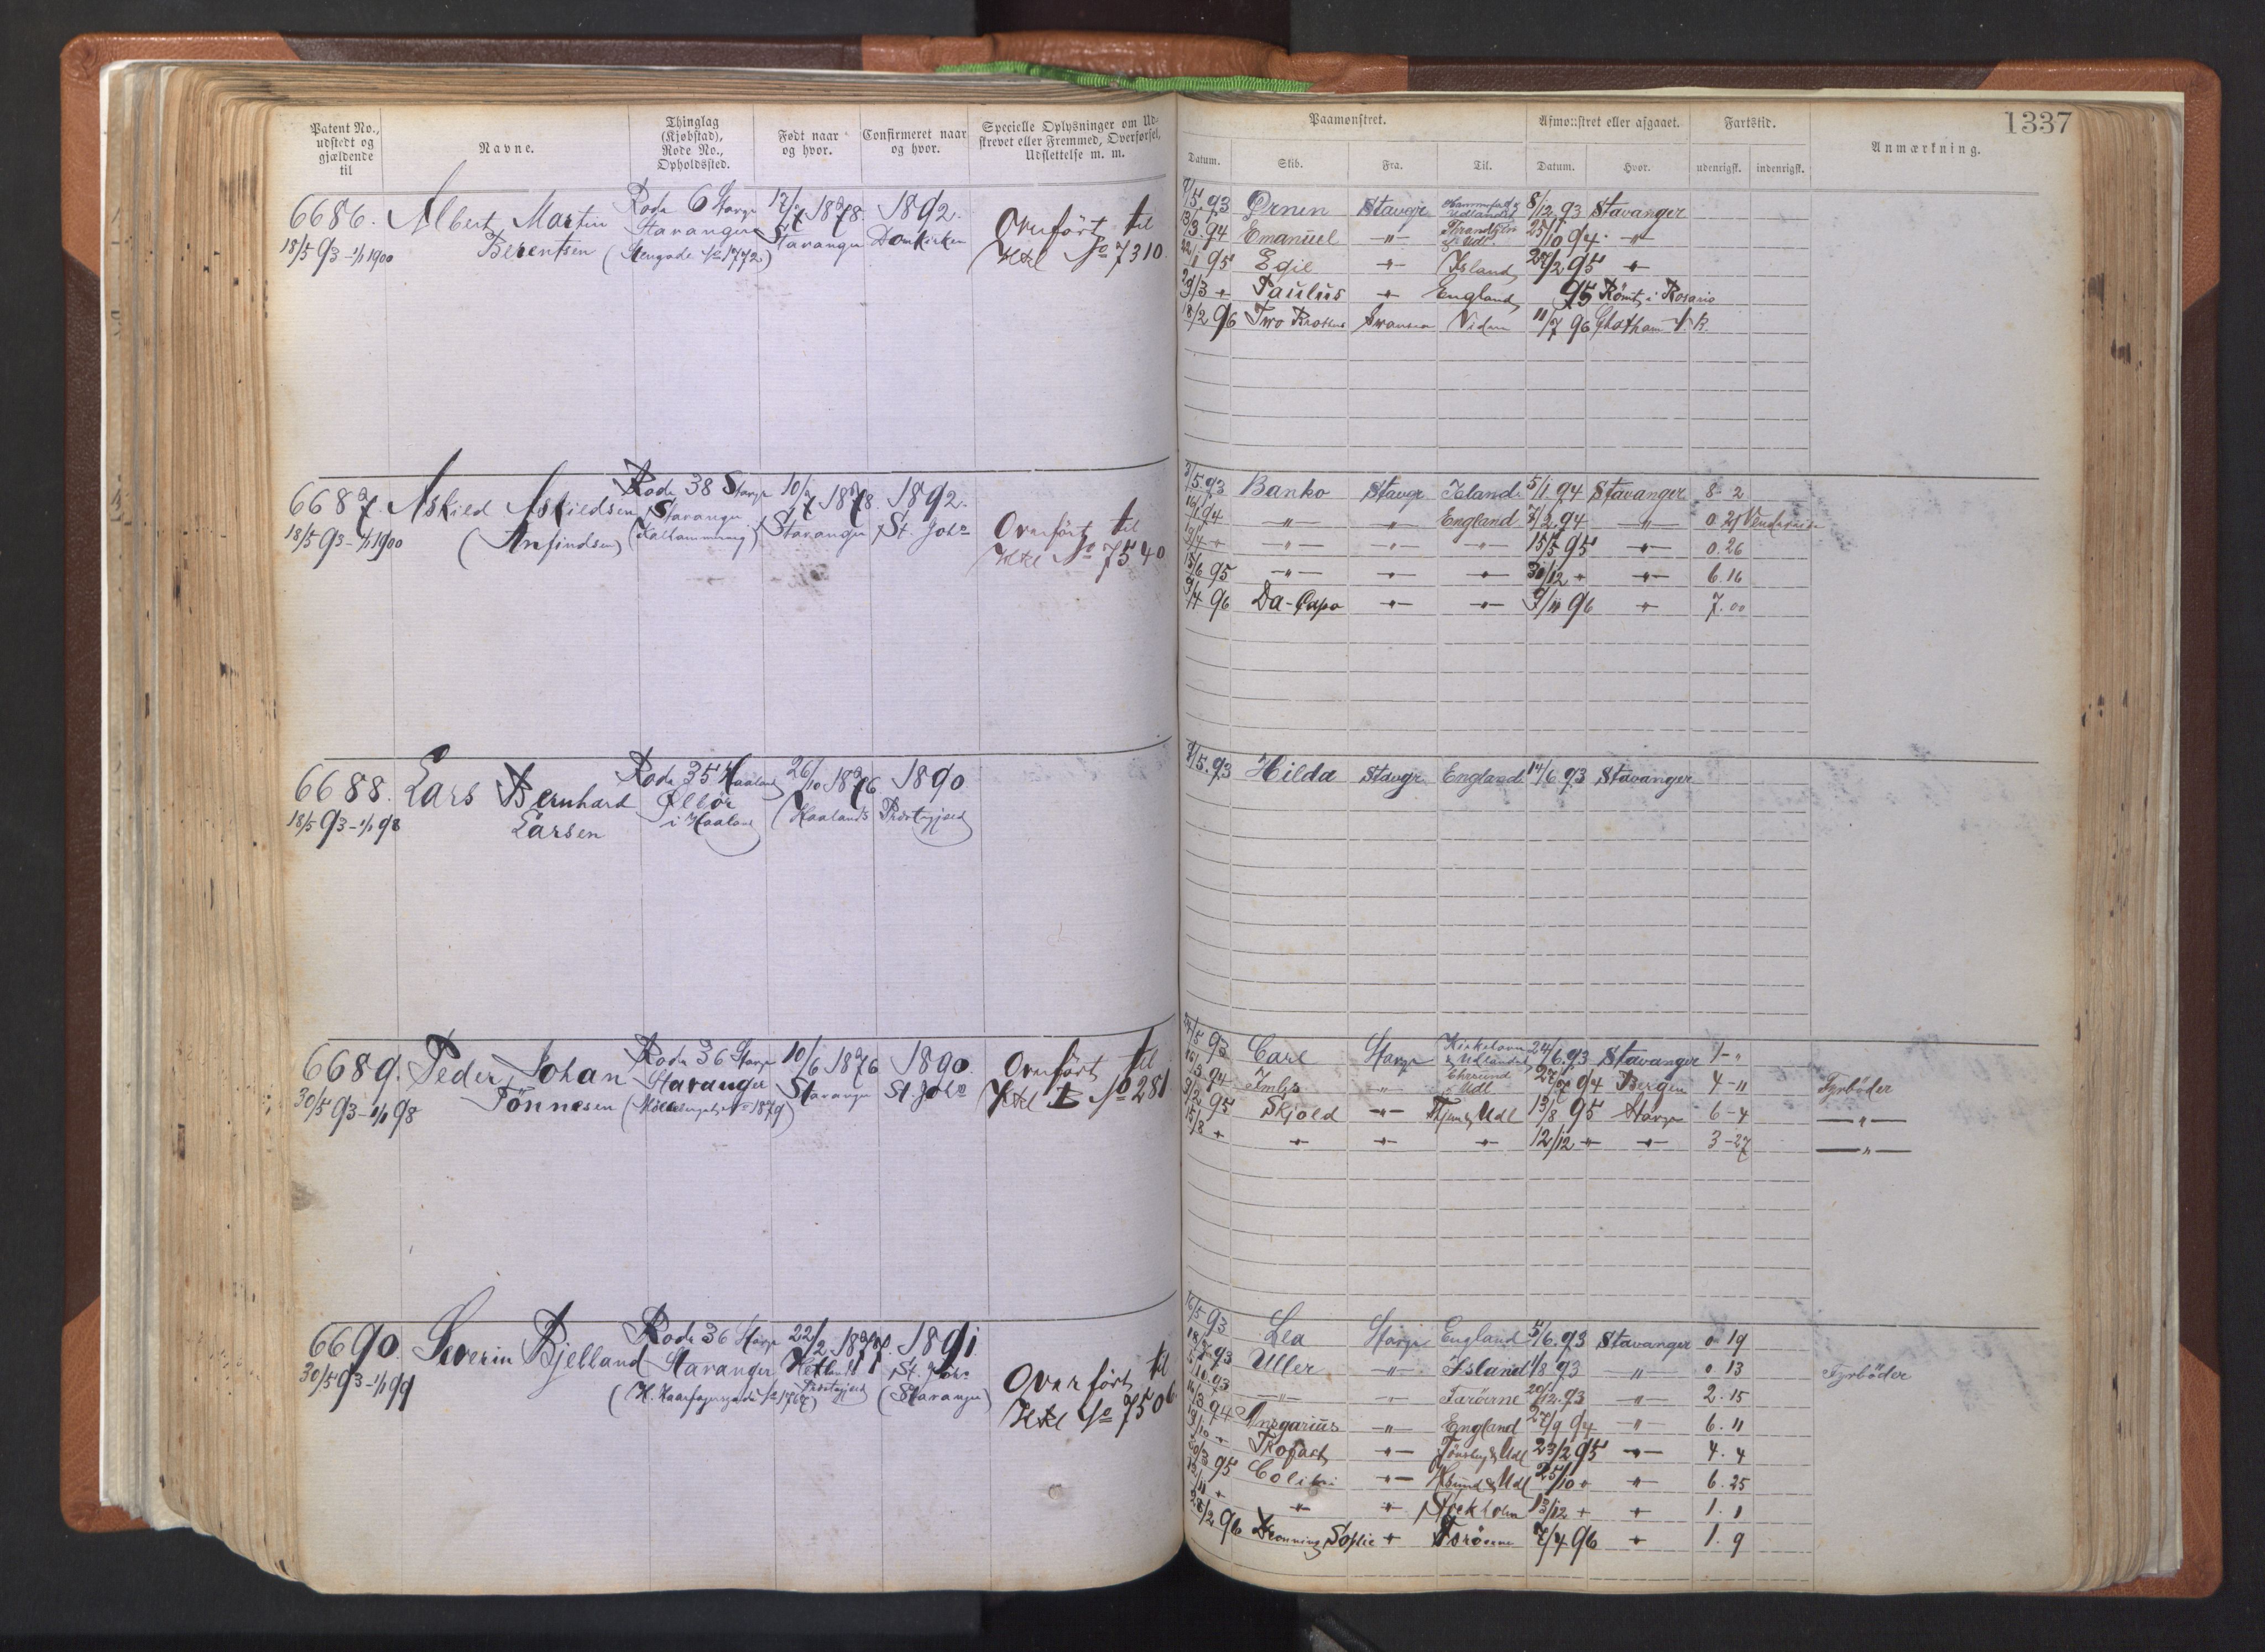 Patent No., udstedt og gjældende til
Navne.
Thinglag (Kjøbstad), Rode No., Opholdssted.
Født naar og hvor.
Confirmeret naar og hvor.
Specielle Oplysninger om Udskrevet eller Fremmed, Overførsel, Udslettelse m. m.
Paamønstret.
Afmønstret eller afgaaet.
Fartstid.
Anmærkning.
1337
Datum. Skib. Fra. Til. Datum. Hvor. udenrigsk. indenrigsk.
6686. Albert Martin Rode 6 Stavgr 12/7 1878. 1892. Overført til
18/5 93 - 1/1 1900 Berentsen Stavanger Stavanger Domkirken No 7310
(Stengade No 177
5.93 Ørnen Stavgr Udlandet 8/12 93 Stavanger
13/3 94 Emanuel -"- Udl. 25/10 94 -"-
95 Egil -"- Island 2 95 -"-
/3 " Paulus -"- England 95 Rømt i Rosario
18/2 96 Two Brothers Swansea 11/7 96 Chatham
6687. Askild Askildsen Rode 38 Stavgr 10/7 1878. 1892.
18/5 93 - 1/1 1900 (Anfindsen) Stavanger Stavanger St. Johs Overført til
No 7540
5.93 Banko Stavgr Island 5/1 94 Stavanger 8- 2
94 -"- " England 2 94 -"- 0.21
" -"- " -"- 15/5 95 -"- 0.26
15/6 95 -"- -"- -"- 30/12 " -"- 6.16
9/4 96 Da-Capo -"- -"- 9/11 96 " 7.00
6688. Lars Bernhard Rode 35 Haaland 26/10 1876 1890.
18/5 93 - 1/1 98 Larsen i Haaland (Haalands Præstegjeld)
5.93 Hilda Stavgr England 14/6.93 Stavanger
6689. Peder Johan Rode 36 Stavgr 10/6 1876 1890. Overført til
30/5 93 - 1/1 98 Tönnesen Stavanger Stavanger St. Johs No 281
5 93 Carl Stavgr & Udlandet 24/6.93 Stavanger 1-"
3 94 -"- Udl 94 Bergen 4-" Fyrböder
/2 95 Skjold -"- Udl 13/8 95 Stavgr 6-4 -"-
15/8 " " -"- " 12/12 " -"- 3-27 -"-
6690. Severin Bjelland Rode 36 Stavgr 22/2 1891
30/5 93 - 1/1 99 Stavanger Hetland St. Johs Overført til
Præstegjeld (Stavanger) No 7506
16/5 93 Lea Stavgr England 5/6.93 Stavanger 0 19
18/7 93 Uller -"- Island 8 93 " 0 13 Fyrböder
5/10.93 -"- " Færöerne 20/12.93 " 2.15
3 94 Ansgarius -"- England 27/9 94 -"- 6.11
/10 " -"- & Udl 23/2 95 -"- 4.4
/3 95 Colibri -"- & Udl 25/10 " " 6.25
/11 " " " Stockholm 13/12 " " 1.1
28/2 96 Dronning Sophie " Færöerne 7/4 96 " 1.9